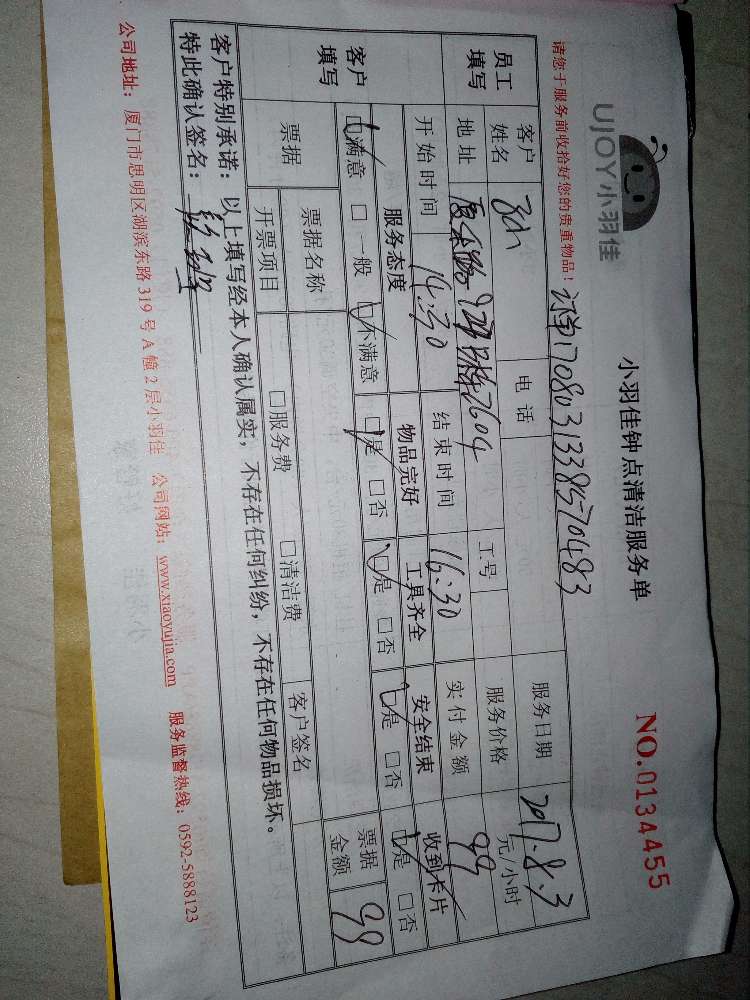 UJOY小羽佳
小羽佳钟点清洁服务单
NO.0134455
请您于服务前收拾好您的贵重物品！ 订单1708031338570483
员工填写 客户姓名 电话 服务日期 2017.8.3
地址 2604 工号 服务价格 元/小时
开始时间 14:30 结束时间 16:30 实付金额 99
客户填写 服务态度 物品完好 工具齐全 安全结束 收到卡片
☑满意 □一般 ☑不满意 ☑是 □否 ☑是 □否 ☑是 □否 ☑是 □否
票据 票据名称 客户签名 票据金额 99
开票项目 □服务费 □清洁费
客户特别承诺：以上填写经本人确认属实，不存在任何纠纷，不存在任何物品损坏。
特此确认签名：
公司地址：厦门市思明区湖滨东路319号A幢2层小羽佳 公司网站：www.xiaoyujia.com 服务监督热线：0592-5888123